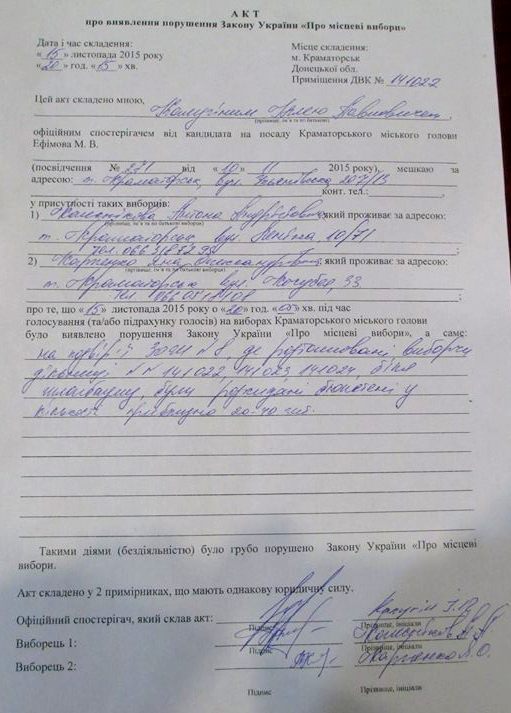 АКТ
про виявлення порушення Закону України «Про місцеві вибори»
Дата і час складення:
« 15 » листопада 2015 року
« 20 » год. « 15 » хв.
Місце складення:
м. Краматорськ
Донецької обл.
Приміщення ДВК № 141022
Цей акт складено мною,
(прізвище, ім'я та по батькові)
офіційним спостерігачем від кандидата на посаду Краматорського міського голови
Ефімова М. В.
(посвідчення № 271 від « 10 » 11 2015 року), мешкаю за
адресою: м. Краматорськ, вул.
конт. тел.:
у присутності таких виборців:
1) який проживає за адресою:
(прізвище, ім'я та по батькові виборця)
м. Краматорськ вул. Леніна 10/71
тел.
2) який проживає за адресою:
(прізвище, ім'я та по батькові виборця)
м. Краматорськ вул.
тел
про те, що « 15 » листопада 2015 року о « 20 » год. « 05 » хв. під час
голосування (та/або підрахунку голосів) на виборах Краматорського міського голови
було виявлено порушення Закону України «Про місцеві вибори», а саме:
на ЗОШ №8, де розташовані виборчі
дільниці №№ 141022, 141023, 141024, біля
шлагбауму, були розкидані бюлетені у
кількості приблизно 20-40 шт.
Такими діями (бездіяльністю) було грубо порушено Закону України «Про місцеві
вибори.
Акт складено у 2 примірниках, що мають однакову юридичну силу.
Офіційний спостерігач, який склав акт:
Підпис Прізвище, ініціали
Виборець 1:
Підпис Прізвище, ініціали
Виборець 2:
Підпис Прізвище, ініціали